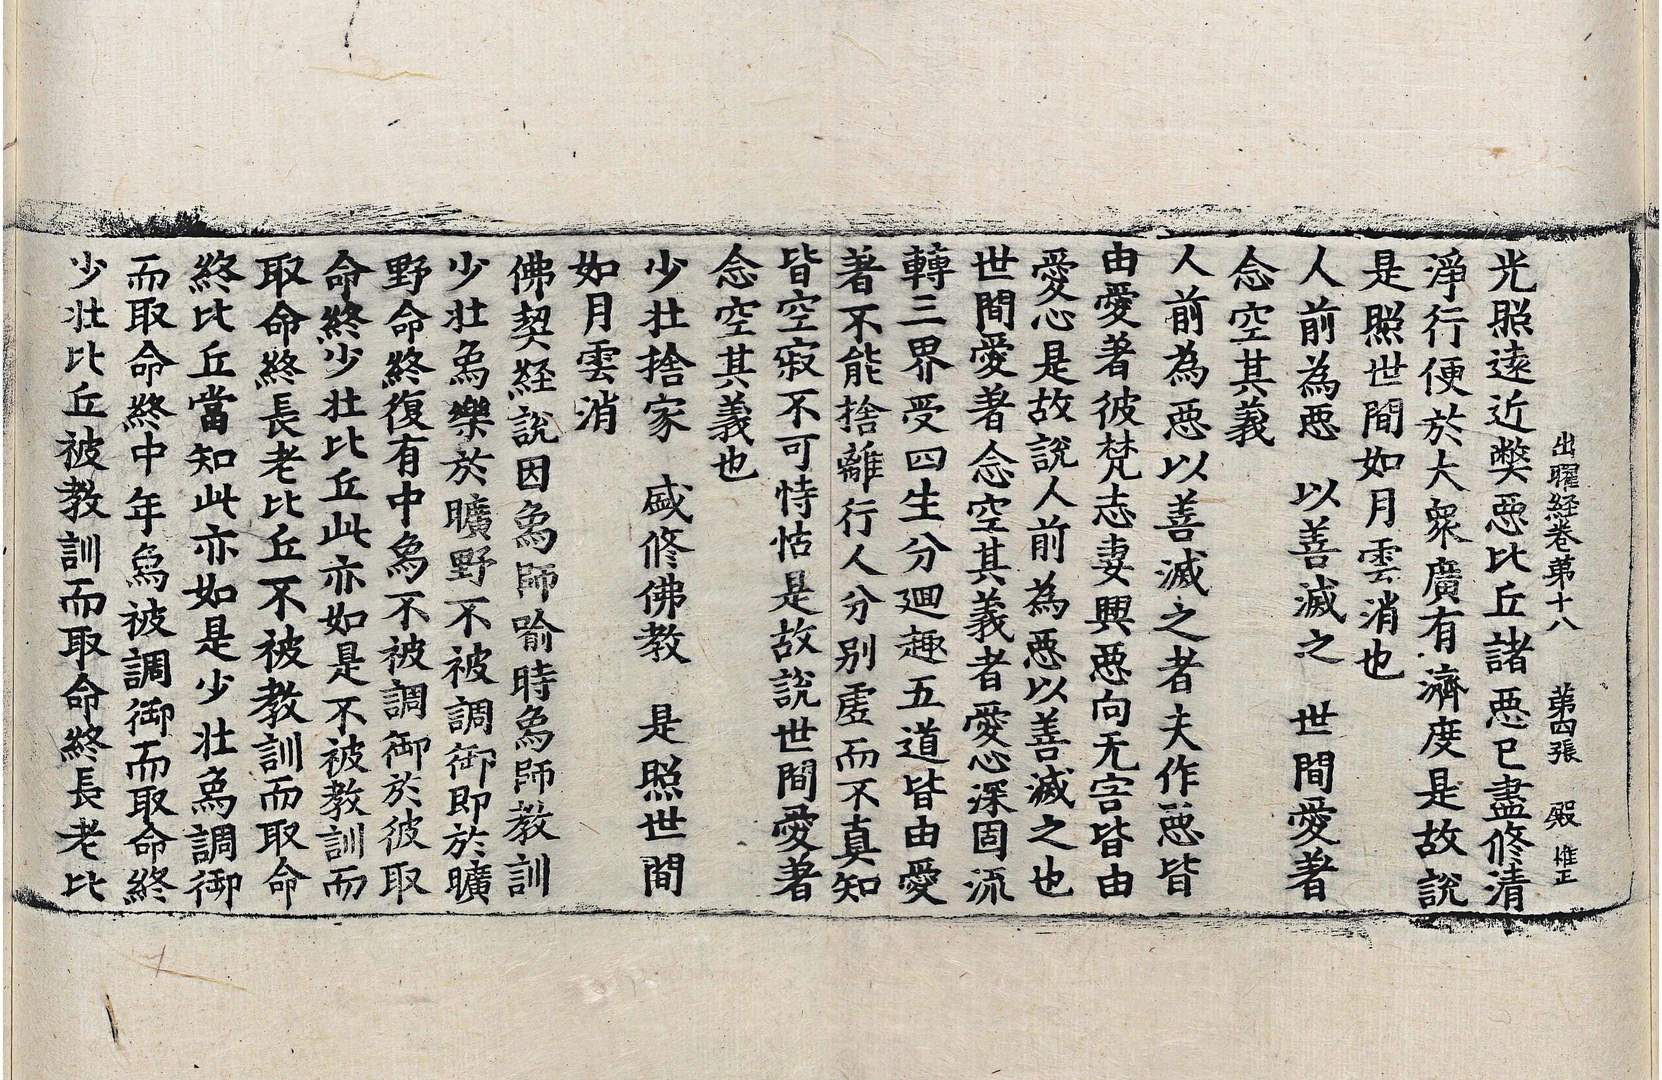 出曜經卷第十八　第四張　殿　惟正
光照遠近弊惡比丘諸惡已盡修清
淨行便於大衆廣有濟度是故說
是照世間如月雲消也
人前為惡　以善滅之　世間愛著
念空其義
人前為惡以善滅之者夫作惡皆
由愛著彼梵志妻興惡向无害皆由
愛心是故說人前為惡以善滅之也
世間愛著念空其義者愛心深固流
轉三界受四生分迴趣五道皆由愛
著不能捨離行人分別虛而不真知
皆空寂不可恃怙是故說世間愛著
念空其義也
少壯捨家　盛修佛教　是照世間
如月雲消
佛契經說因象師喻時象師教訓
少壯象樂於曠野不被調御即於曠
野命終復有中象不被調御於彼取
命終少壯比丘此亦如是不被教訓而
取命終長老比丘不被教訓而取命
終比丘當知此亦如是少壯象調御
而取命終中年象被調御而取命終
少壯比丘被教訓而取命終長老比